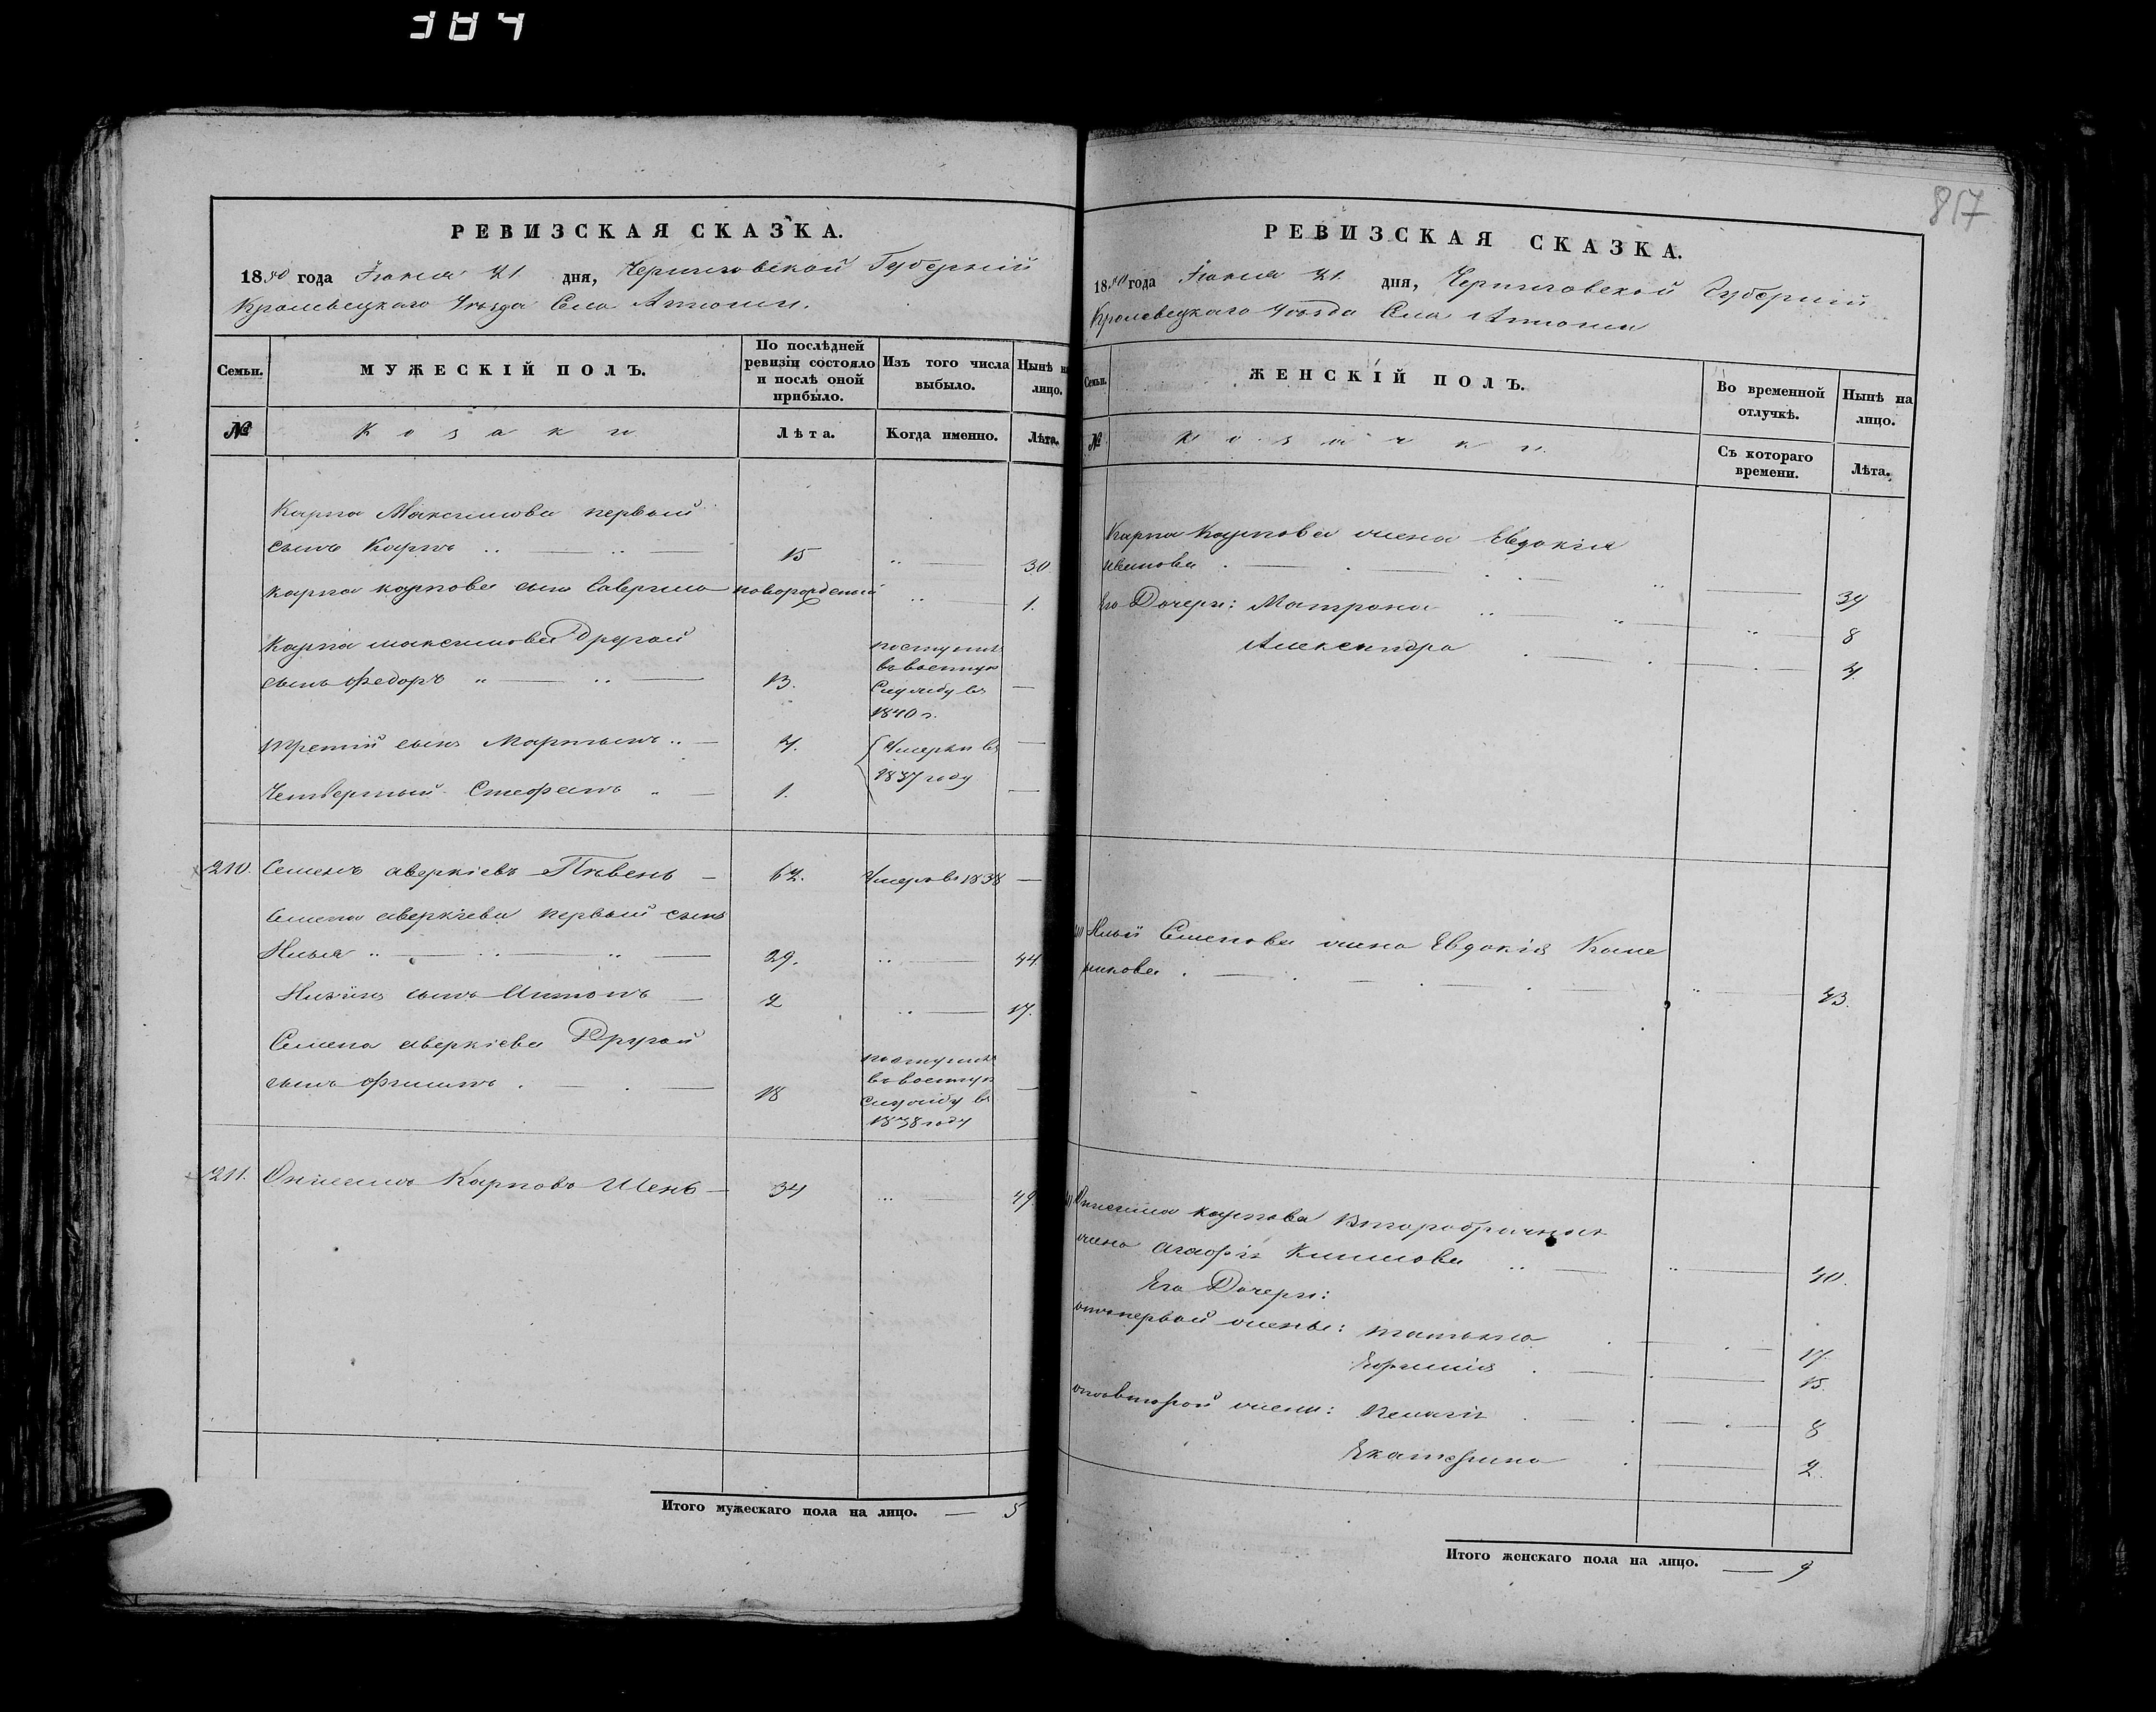 384
817
РЕВИЗСКАЯ СКАЗКА.
1850 года Іюня 21 дня, Черниговской Губерніи
Кролевецкаго Уѣзда Села
Семьи.
МУЖЕСКІЙ ПОЛЪ.
По послѣдней ревизіи состояло и послѣ оной прибыло.
Изъ того числа выбыло.
Нынѣ на лицо.
№
Козаки
Лѣта.
Когда именно.
Лѣта.
Карпа Максимова первый
сынъ Карпъ 15 30
Карпа Карпова сынъ новорожденый 1.
Карпа Максимова Другой
сынъ Федоръ 13. поступилъ въ военную службу въ 1840 г.
третій сынъ Мартынъ
Четвертый Стефанъ 1. Умерли въ 1837 году
210. Семенъ Аверкіевъ Пѣвень 62. Умеръ въ 1838
Семена Аверкіева первый сынъ
Илья 29. 44
Ильинъ сынъ Антонъ 2 17.
Семена Аверкіева Другой
сынъ Филипъ 18 поступилъ въ военную службу въ 1838 году
211. Онисимъ Карповъ Шень 34 49.
Итого мужескаго пола на лицо. 5
РЕВИЗСКАЯ СКАЗКА.
1850 года Іюня 21. дня, Черниговской Губерніи
Кролевецкаго Уѣзда Села
Семьи.
ЖЕНСКІЙ ПОЛЪ.
Во временной отлучкѣ.
Нынѣ на лицо.
№
Козачки.
Съ котораго времени.
Лѣта.
Карпа Карпова жена Евдокія
Иванова 34
Его Дочери: Матрона 8
Александра
Ильи Семенова жена Евдокія
43.
Онисима Карпова второбрачная
жена Агафія Климова 40.
Его Дочери:
отъ первой жены: Татьяна 17.
Евфимія 15.
отъ второй жены: Пелагія 8
Екатерина 2.
Итого женскаго пола на лицо. 9